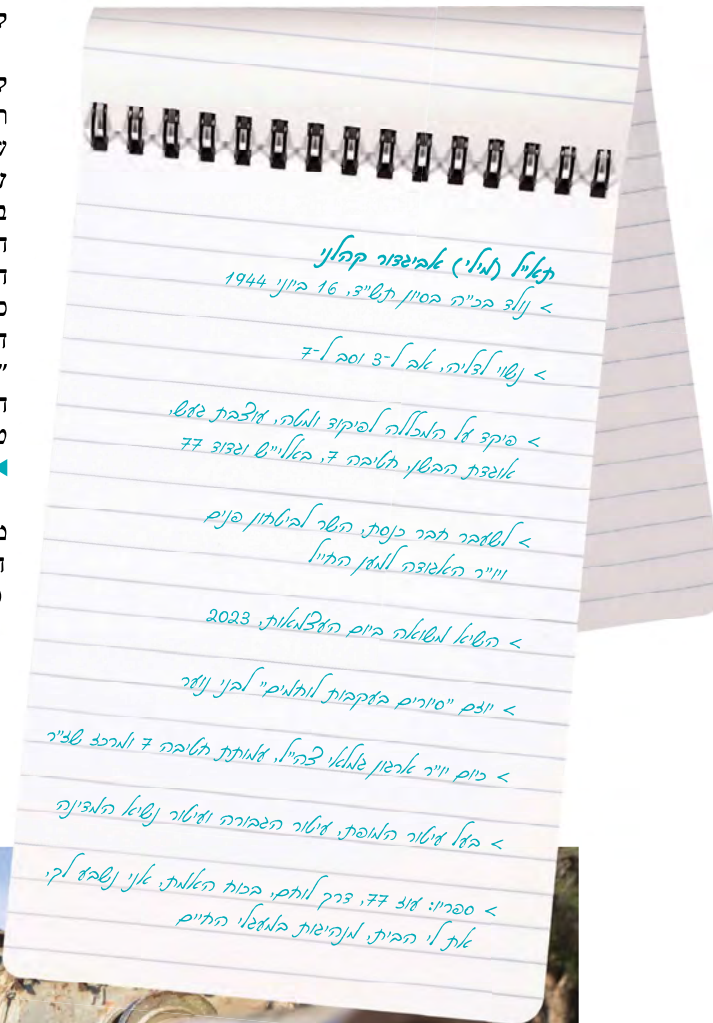 תא"ל (מיל') אביגדור קהלני
> נולד בכ"ה בסיון תש"ד, 16 ביוני 1944
> נשוי לדליה, אב ל-3 וסב ל-7
> פיקד על המכללה לפיקוד ומטה, עוצבת געש,
אוגדת הבשן, חטיבה 7, באלי"ש וגדוד 77
> לשעבר חבר כנסת, השר לביטחון פנים
ויו"ר האגודה למען החייל
> השיא משואה ביום העצמאות, 2023
> יוזם "סיורים בעקבות לוחמים" לבני נוער
> כיום יו"ר ארגון גמלאי צה"ל, עמותת חטיבה 7 ומרכז שז"ר
> בעל עיטור המופת, עיטור הגבורה ועיטור נשיא המדינה
> ספריו: עוז 77, דרך לוחם, בכוח האמת, אני נשבע לך,
את לי הבית, מנהיגות במעגלי החיים